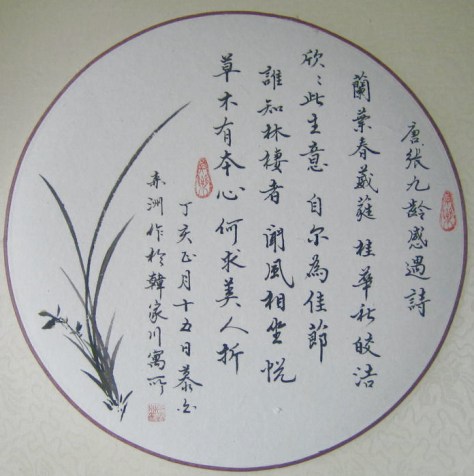 唐張九龄感遇詩
蘭葉春葳蕤 桂華秋皎洁
欣〻此生意 自尔為佳節
誰知林棲者 聞風相坐悦
草木有本心 何求美人折
丁亥正月十五日
洲作於韓家川寓所